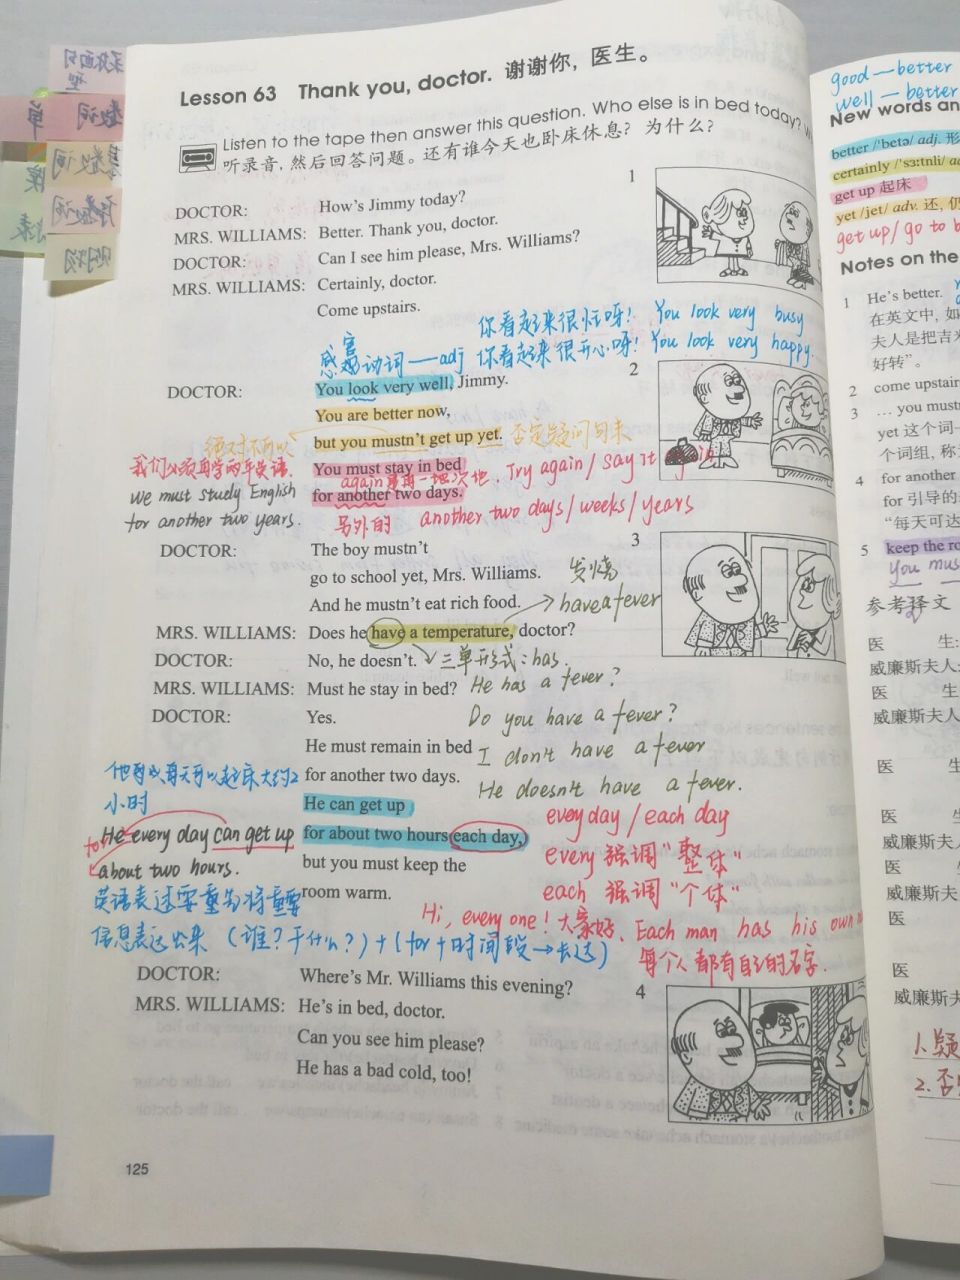 Lesson 63 Thank you, doctor. 谢谢你，医生。
Listen to the tape then answer this question. Who else is in bed today?
听录音，然后回答问题。还有谁今天也卧床休息？为什么？
1
DOCTOR: How's Jimmy today?
MRS. WILLIAMS: Better. Thank you, doctor.
DOCTOR: Can I see him please, Mrs. Williams?
MRS. WILLIAMS: Certainly, doctor.
Come upstairs.
你看起来很忙呀! You look very busy
感官动词——adj 你看起来很开心呀! You look very happy.
2
DOCTOR: You look very well, Jimmy.
You are better now,
绝对不可以 but you mustn't get up yet. 否定疑问句末
我们必须再学两年英语. You must stay in bed
again 再一次地. Try again / say it again
we must study English for another two days.
for another two years. 另外的 another two days/weeks/years
3
DOCTOR: The boy mustn't
go to school yet, Mrs. Williams. 发烧
And he mustn't eat rich food. have a fever
MRS. WILLIAMS: Does he have a temperature, doctor?
DOCTOR: No, he doesn't. 三单形式: has.
MRS. WILLIAMS: Must he stay in bed? He has a fever?
DOCTOR: Yes. Do you have a fever?
He must remain in bed I don't have a fever
for another two days. He doesn't have a fever.
小时 He can get up every day / each day
for about two hours each day,
He every day can get up every 强调"整体"
for about two hours. but you must keep the each 强调"个体"
room warm.
Hi, every one! 大家好. Each man has his own
信息表达出来 (谁?干什么?)+(for+时间段→长达)
每个人都有自己的名字.
DOCTOR: Where's Mr. Williams this evening?
4
MRS. WILLIAMS: He's in bed, doctor.
Can you see him please?
He has a bad cold, too!
125
good—better
well—better
New words an
better /'betə/ adj. 形
certainly /'sɜ:tnli/ ad
get up 起床
yet /jet/ adv. 还, 仍
get up / go to b
Notes on the
1 He's better.
在英文中, 如
夫人是把吉米
好转"。
2 come upstair
3 … you mustn
yet 这个词
个词组, 称
4 for another
for 引导的
"每天可达
5 keep the ro
you mus
参考译文
医 生:
威廉斯夫人:
医 生
威廉斯夫人
医 生
医 生
威廉斯夫人
医
威廉斯夫人
医
医
威廉斯夫
1. 疑
2. 否